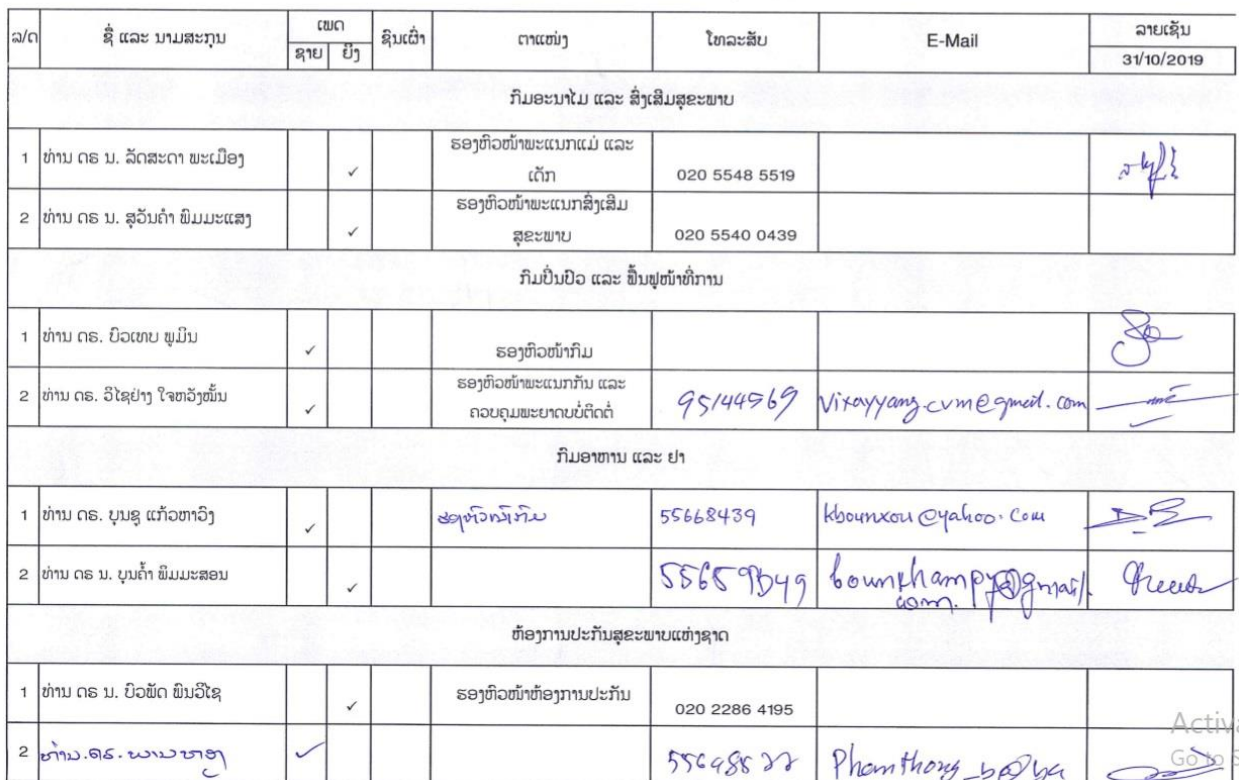 ລ/ດ ຊື່ ແລະ ນາມສະກຸນ ເພດ ຊົນເຜົ່າ ຕາແໜ່ງ ໂທລະສັບ E-Mail ລາຍເຊັນ
ຊາຍ ຍິງ 31/10/2019
ກົມອະນາໄມ ແລະ ສົ່ງເສີມສຸຂະພາບ
1 ທ່ານ ດຣ ນ. ລັດສະດາ ພະເມືອງ ✓ ຮອງຫົວໜ້າພະແນກແມ່ ແລະ
ເດັກ 020 5548 5519
2 ທ່ານ ດຣ ນ. ສຸວັນຄຳ ພິມມະແສງ ✓ ຮອງຫົວໜ້າພະແນກສົ່ງເສີມ
ສຸຂະພາບ 020 5540 0439
ກົມປິ່ນປົວ ແລະ ຟື້ນຟູໜ້າທີ່ການ
1 ທ່ານ ດຣ. ບົວເທບ ພູມິນ ✓ ຮອງຫົວໜ້າກົມ
2 ທ່ານ ດຣ. ວິໄຊຢ່າງ ໃຈຫວັງໝັ້ນ ✓ ຮອງຫົວໜ້າພະແນກກັນ ແລະ
ຄວບຄຸມພະຍາດບໍ່ຕິດຕໍ່ 95144569 vixayyang.cvm@gmail.com
ກົມອາຫານ ແລະ ຢາ
1 ທ່ານ ດຣ. ບຸນຊູ ແກ້ວຫາວົງ ✓ ຮອງຫົວໜ້າກົມ 55668439 kbounxou@yahoo.com
2 ທ່ານ ດຣ ນ. ບຸນຄ້ຳ ພິມມະສອນ ✓ bounkhampy@gmail.
com.
ຫ້ອງການປະກັນສຸຂະພາບແຫ່ງຊາດ
1 ທ່ານ ດຣ ນ. ບົວພັດ ພົນວິໄຊ ✓ ຮອງຫົວໜ້າຫ້ອງການປະກັນ 020 2286 4195
2 ທ່ານ.ດຣ. ພານທອງ ✓
Activa
Go to S